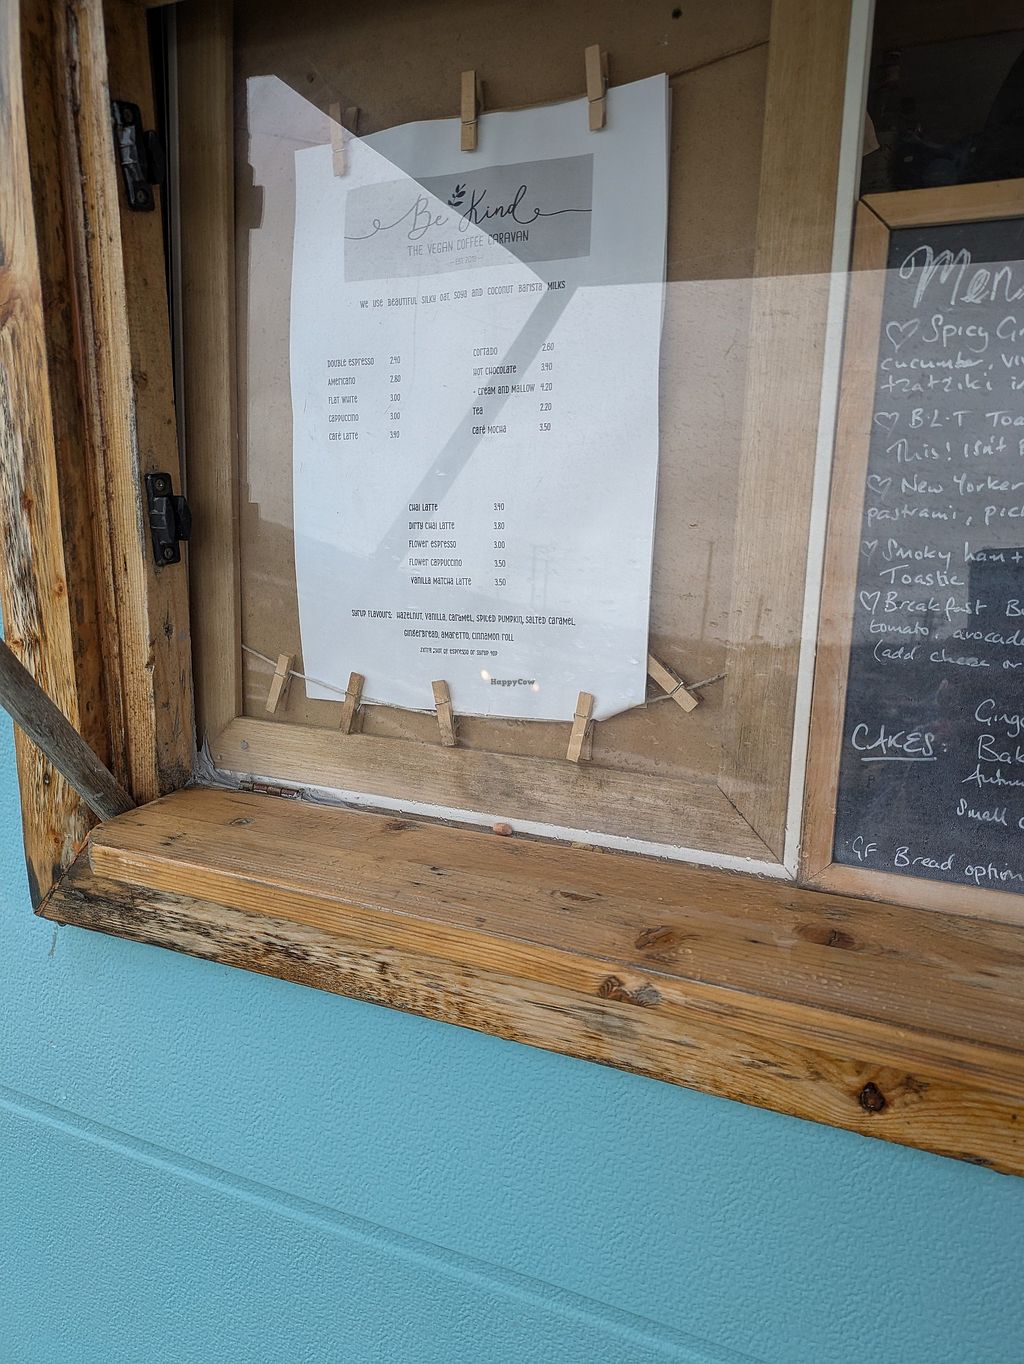 Be Kind
THE VEGAN COFFEE CARAVAN
EST 2019
WE USE BEAUTIFUL SILKY OAT, SOYA AND COCONUT BARISTA MILKS
DOUBLE ESPRESSO 2.40
AMERICANO 2.80
FLAT WHITE 3.00
CAPPUCCINO 3.00
CAFÉ LATTE 3.40
CORTADO 2.60
HOT CHOCOLATE 3.40
+ CREAM AND MALLOW 4.20
TEA 2.20
CAFÉ MOCHA 3.50
CHAI LATTE 3.40
DIRTY CHAI LATTE 3.80
FLOWER ESPRESSO 3.00
FLOWER CAPPUCCINO 3.50
VANILLA MATCHA LATTE 3.50
SYRUP FLAVOURS: HAZELNUT, VANILLA, CARAMEL, SPICED PUMPKIN, SALTED CARAMEL,
GINGERBREAD, AMARETTO, CINNAMON ROLL
EXTRA SHOT OF ESPRESSO OR SYRUP 40P
HappyCow
Men
Spicy G
cucumber, vi
tzatziki i
B.L.T Toa
This! Isn't
New Yorker
pastrami, pic
Smoky ham +
Toastie
Breakfast B
tomato, avocad
(add cheese or
CAKES:
Ging
Bak
Autum
Small
GF Bread option